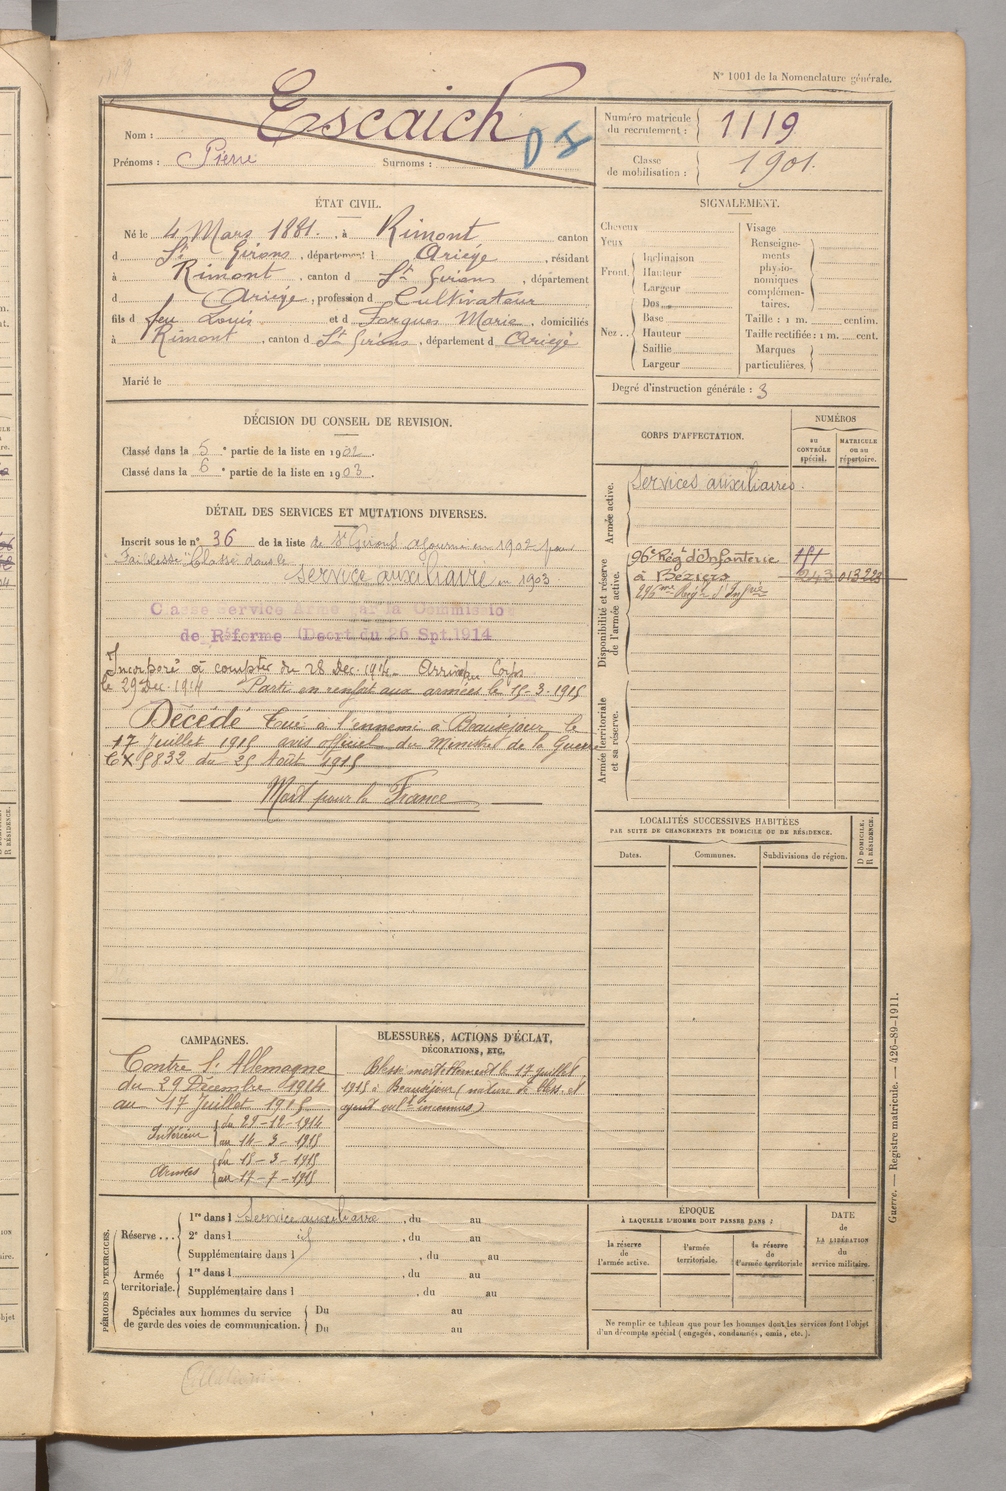 N° 1001 de la Nomenclature générale.
Nom : Escaich
Prénoms : Pierre Surnoms : DI
Numéro matricule du recrutement : 1119
Classe de mobilisation : 1901.
ÉTAT CIVIL.
Né le 4 Mars 1881. , à Rimont canton
d St Girons , département d Ariège , résidant
à Rimont , canton d St Girons , département
d Ariège , profession d Cultivateur
fils d feu Louis et d Fargues Marie , domiciliés
à Rimont , canton d St Girons , département d Ariège
Marié le
SIGNALEMENT.
Cheveux
Yeux
Front. Inclinaison
Hauteur
Largeur
Nez.. Dos
Base
Hauteur
Saillie
Largeur
Visage
Renseignements physionomiques complémentaires.
Taille : 1 m. centim.
Taille rectifiée : 1 m. cent.
Marques particulières.
Degré d'instruction générale : 3
DÉCISION DU CONSEIL DE REVISION.
Classé dans la 5e partie de la liste en 1902.
Classé dans la 6e partie de la liste en 1903.
DÉTAIL DES SERVICES ET MUTATIONS DIVERSES.
Inscrit sous le n° 36 de la liste de St Girons ajourné en 1902 pour
"Faiblesse" Classé dans le
service auxiliaire en 1903.
Classé Service Armé par la Commission
de Réforme (Décrt du 26 Spt. 1914
Incorporé à compter du 28 Dec. 1914 Arrivé au Corps
le 29 Dec. 1914 Parti en renfort aux armées le 15-3-1915
Décédé Tué à l'ennemi à Beauséjour le
17 Juillet 1915 avis officiel du Ministre de la Guerre
CX 5832 du 25 Août 1915
Mort pour la France
CORPS D'AFFECTATION.
NUMÉROS
au CONTRÔLE spécial.
MATRICULE ou au répertoire.
Armée active.
Services auxiliaires.
Disponibilité et réserve de l'armée active.
96e Régt d'Infanterie
à Béziers 243 013223
296me Rég. d'Infrie
Armée territoriale et sa réserve.
LOCALITÉS SUCCESSIVES HABITÉES
PAR SUITE DE CHANGEMENTS DE DOMICILE OU DE RÉSIDENCE.
Dates. Communes. Subdivisions de région. D DOMICILE. R RÉSIDENCE.
CAMPAGNES.
Contre l'Allemagne
du 29 Décembre 1914
au 17 Juillet 1915
Intérieur du 29-12-1914
au 14-3-1915
Armées du 15-3-1915
au 17-7-1915
BLESSURES, ACTIONS D'ÉCLAT,
DÉCORATIONS, ETC.
Blessé mortellement le 17 juillet
1915 à Beauséjour (nature de bless. et
agent vult inconnus)
PÉRIODES D'EXERCICES.
Réserve... 1re dans l Service auxiliaire , du au
2e dans l id , du au
Supplémentaire dans l , du au
Armée territoriale. 1re dans l , du au
Supplémentaire dans l , du au
Spéciales aux hommes du service de garde des voies de communication. Du au
Du au
ÉPOQUE
À LAQUELLE L'HOMME DOIT PASSER DANS :
la réserve de l'armée active.
l'armée territoriale.
la réserve de l'armée territoriale
DATE de LA LIBÉRATION du service militaire.
Ne remplir ce tableau que pour les hommes dont les services font l'objet
d'un décompte spécial (engagés, condamnés, omis, etc.).
Guerre. — Registre matricule. — 426-89-1911.